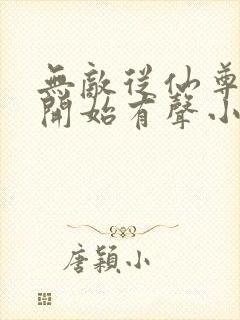 無敵從仙尊
開始有聲小
唐穎小